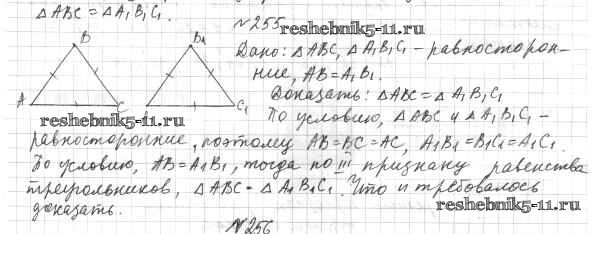 △ABC = △A₁B₁C₁.
№255
reshebnik5-11.ru
Дано: △ABC, △A₁B₁C₁ – равносторон-
ние, AB = A₁B₁.
Доказать: △ABC = △A₁B₁C₁
B
B₁
A
C
C₁
reshebnik5-11.ru
По условию, △ABC и △A₁B₁C₁ –
равносторонние, поэтому AB = BC = AC, A₁B₁ = B₁C₁ = A₁C₁.
По условию, AB = A₁B₁, тогда по III признаку равенства
треугольников, △ABC = △A₁B₁C₁. Что и требовалось
доказать.
reshebnik5-11.ru
№256